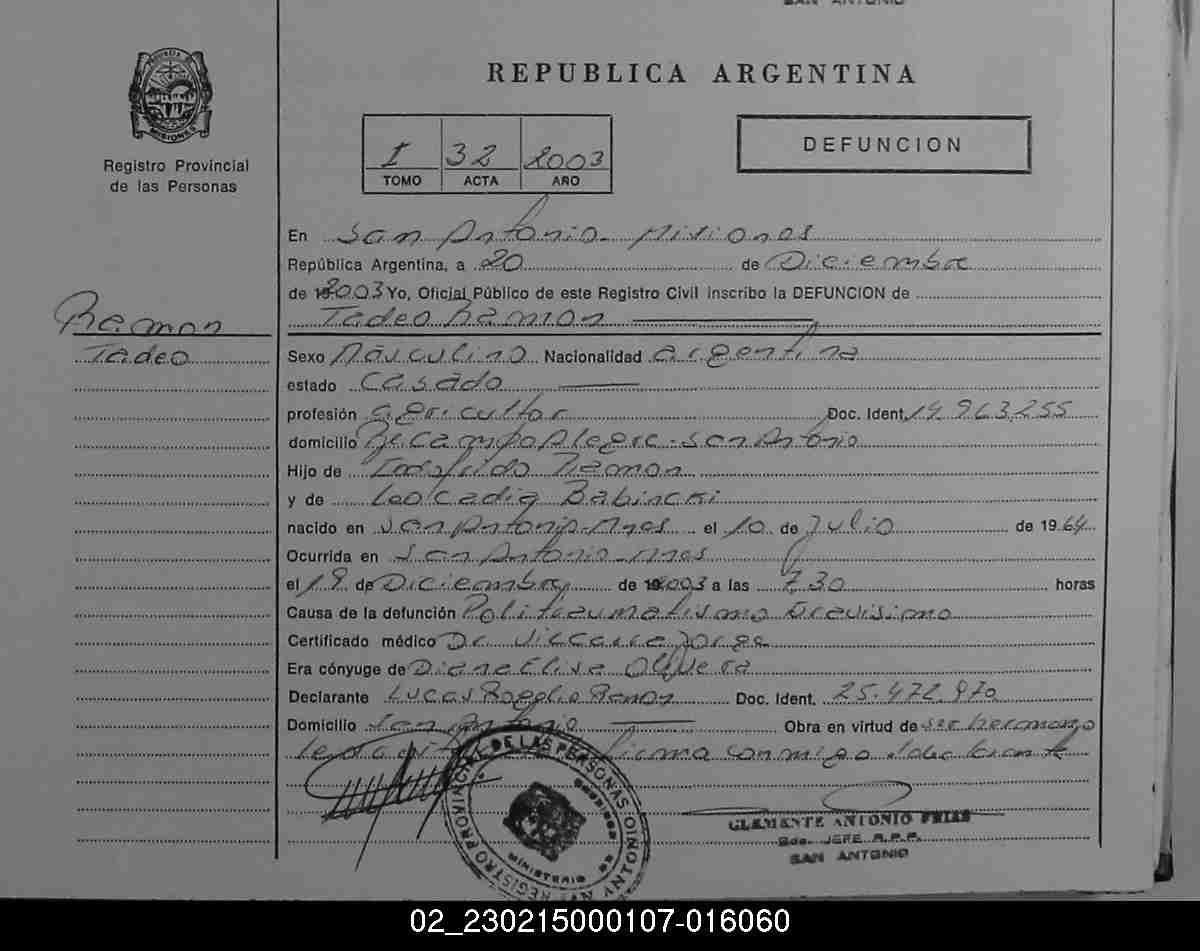 SAN ANTONIO
REPUBLICA ARGENTINA
MISIONES
Registro Provincial
de las Personas
I 32 2003
TOMO ACTA AÑO
DEFUNCION
En San Antonio - Misiones
República Argentina, a 20 de Diciembre
de 2003 Yo, Oficial Público de este Registro Civil inscribo la DEFUNCION de
Tadeo Ramon
Ramon
Tadeo
Sexo Masculino Nacionalidad argentina
estado Casado
profesión agricultor Doc. Ident. 14.963.255
domicilio Campo Alegre - San Antonio
Hijo de Ramon
y de Leocadia Babincki
nacido en San Antonio - Mnes el 10 de Julio de 1964
Ocurrida en San Antonio - Mnes
el 19 de Diciembre de 2003 a las 7,30 horas
Causa de la defunción Politraumatismo Gravisimo
Certificado médico Dr. Jorge
Era cónyuge de Olivera
Declarante Lucas Rogelio Ramon Doc. Ident. 25.472.970
Domicilio San Antonio Obra en virtud de ser hermano
firma conmigo
REGISTRO PROVINCIAL DE LAS PERSONAS
MINISTERIO DE
CLEMENTE ANTONIO FRIAS
JEFE R.P.P.
SAN ANTONIO
02_230215000107-016060